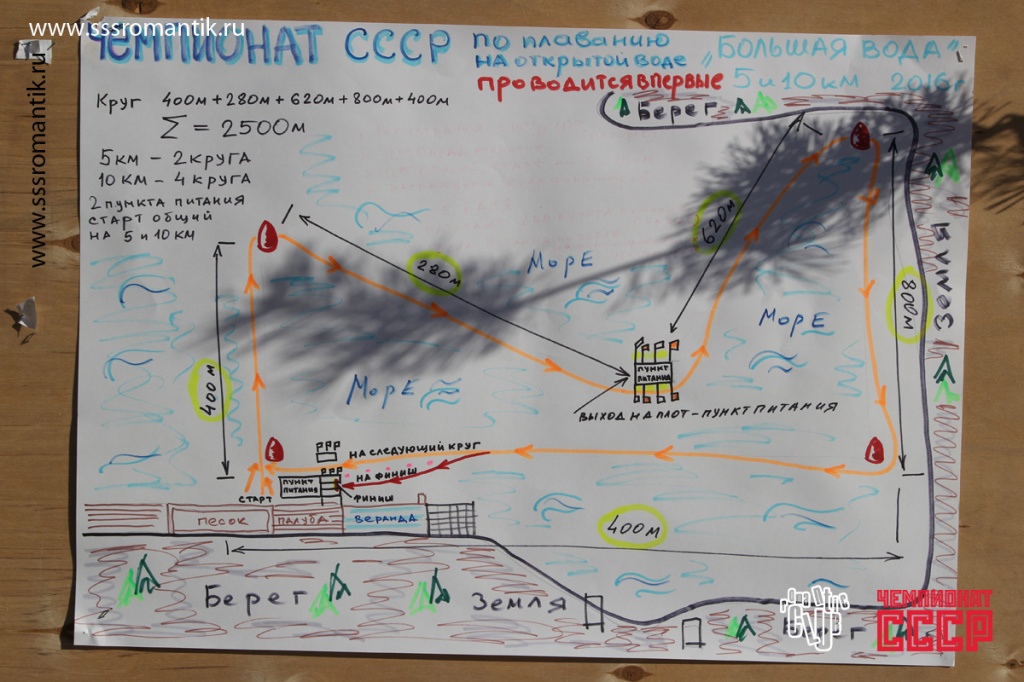 www.sssromantik.ru
www.sssromantik.ru
ЧЕМПИОНАТ СССР
ПО ПЛАВАНИЮ
НА ОТКРЫТОЙ ВОДЕ
„БОЛЬШАЯ ВОДА"
ПРОВОДИТСЯ ВПЕРВЫЕ
5 и 10 КМ 2016 г
Круг 400м + 280м + 620м + 800м + 400м
Σ = 2500м
5 КМ – 2 КРУГА
10 КМ – 4 КРУГА
2 ПУНКТА ПИТАНИЯ
СТАРТ ОБЩИЙ
НА 5 И 10 КМ
Берег
620м
280м
МорЕ
МорЕ
МорЕ
800м
ЗЕМЛЯ
400м
ПУНКТ
ПИТАНИЯ
ВЫХОД НА ПЛОТ – ПУНКТ ПИТАНИЯ
НА СЛЕДУЮЩИЙ КРУГ
НА ФИНИШ
ПУНКТ
ПИТАНИЯ
СТАРТ
ФИНИШ
ПЕСОК
ПАЛУБА
ВЕРАНДА
400м
Берег
Земля
ЧЕМПИОНАТ
СССР